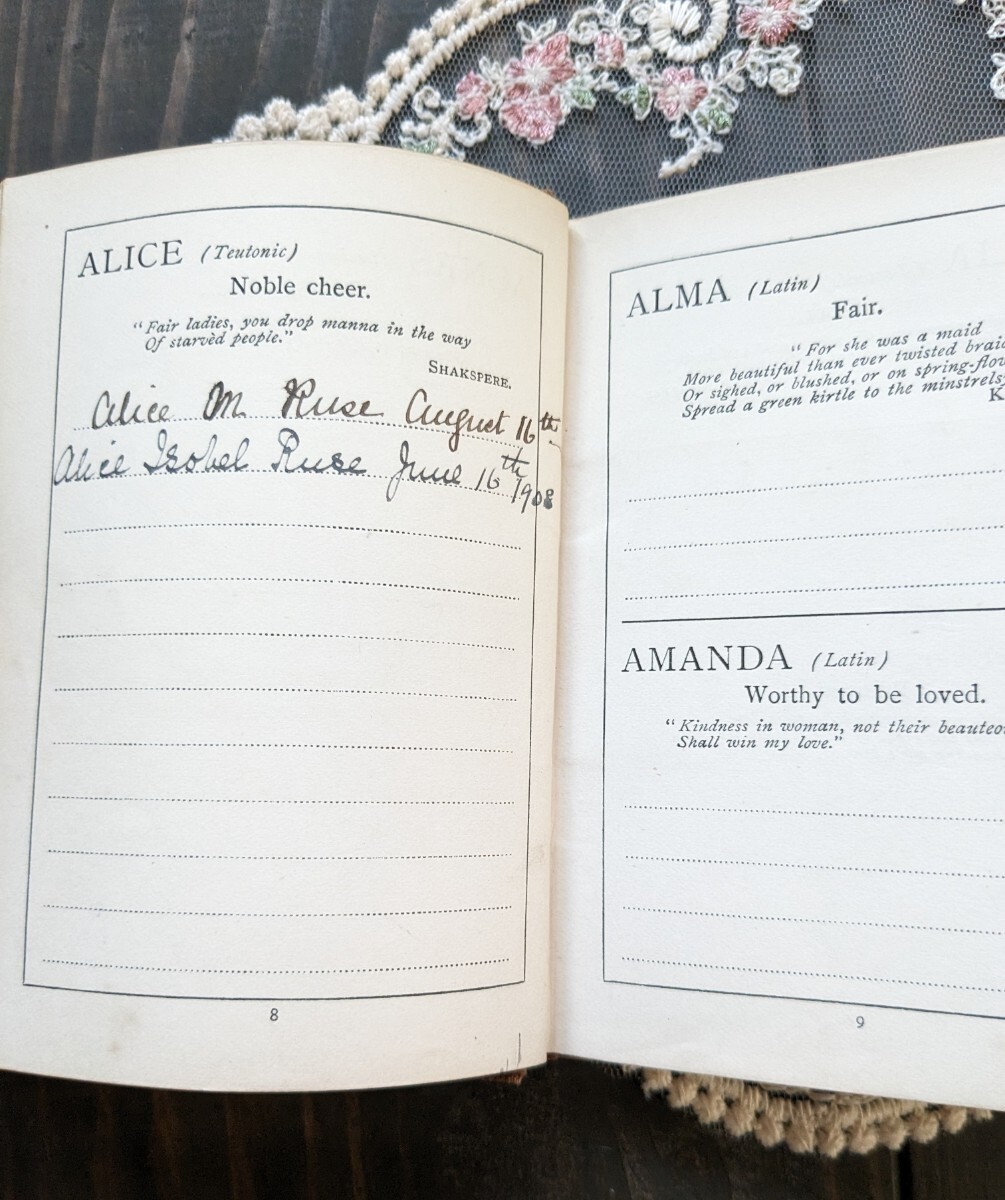 ALICE (Teutonic)
Noble cheer.
"Fair ladies, you drop manna in the way
Of starvèd people."
SHAKSPERE.
Alice M. Ruse August 16th
Alice Isobel Ruse June 16th 1908
8
ALMA (Latin)
Fair.
"For she was a maid
More beautiful than ever twisted
Or sighed, or blushed, or on
Spread a green kirtle to the minstrelsy
AMANDA (Latin)
Worthy to be loved.
"Kindness in woman, not their
Shall win my love."
9